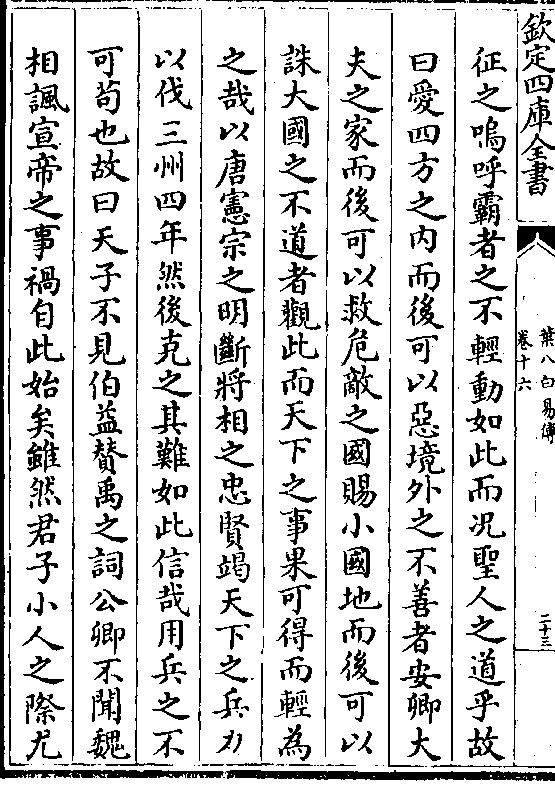 欽定四庫全書
葉八白易傳
卷十六
二十三
征之嗚呼霸者之不輕動如此而况聖人之道乎故
曰愛四方之内而後可以惡境外之不善者安卿大
夫之家而後可以救危敵之國賜小國地而後可以
誅大國之不道者觀此而天下之事果可得而輕為
之哉以唐憲宗之明斷將相之忠賢竭天下之兵力
以伐三州四年然後克之其難如此信哉用兵之不
可苟也故曰天子不見伯益贊禹之詞公卿不聞魏
相諷宣帝之事禍自此始矣雖然君子小人之際尤